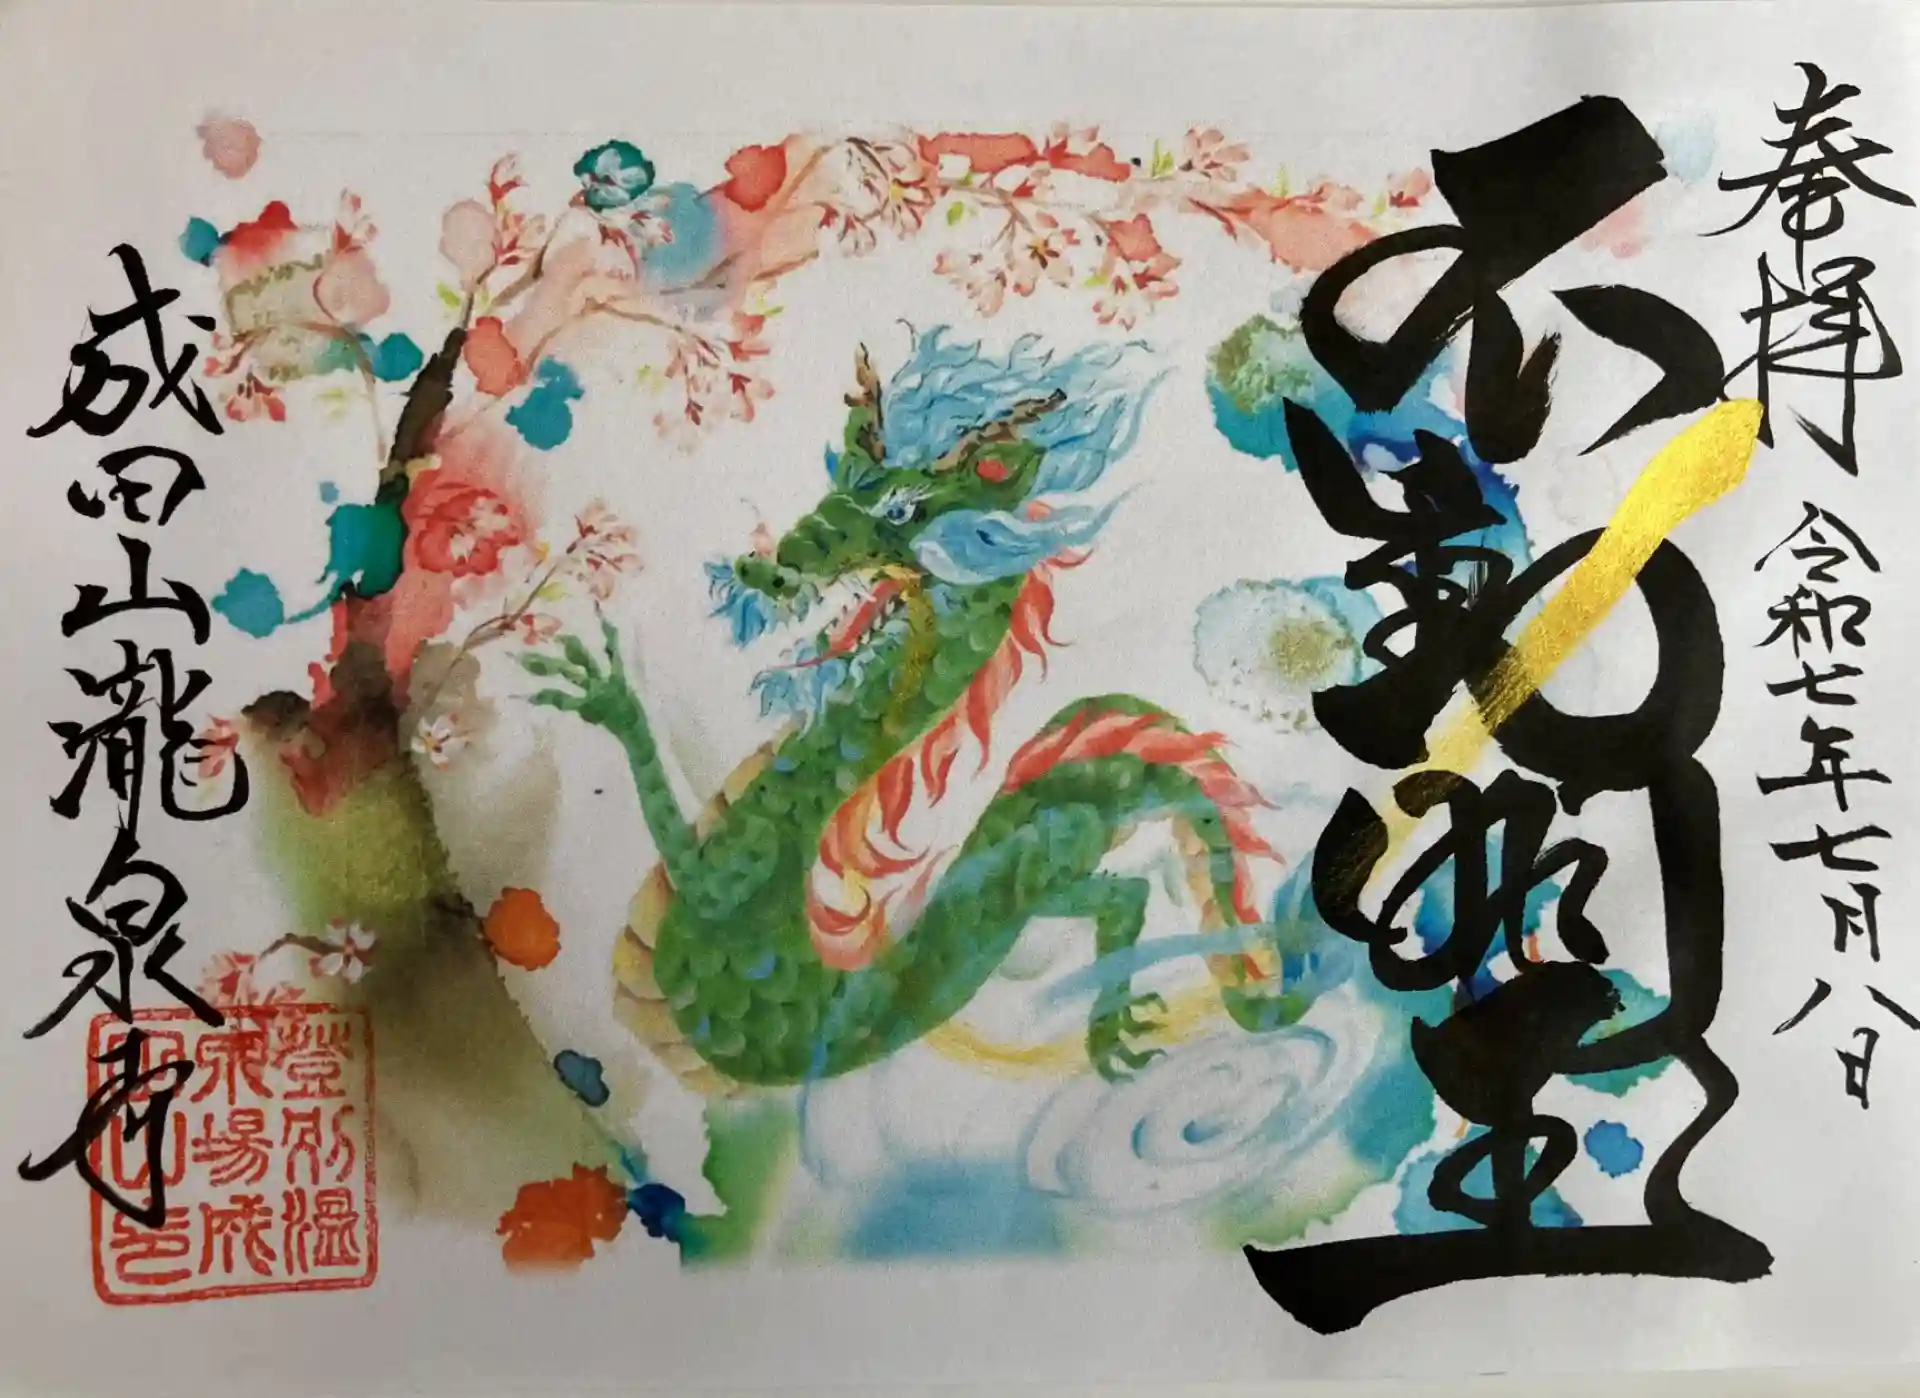 奉拝 令和七年七月八日
不動明王
成田山瀧泉寺
登別温
泉場成
田山印